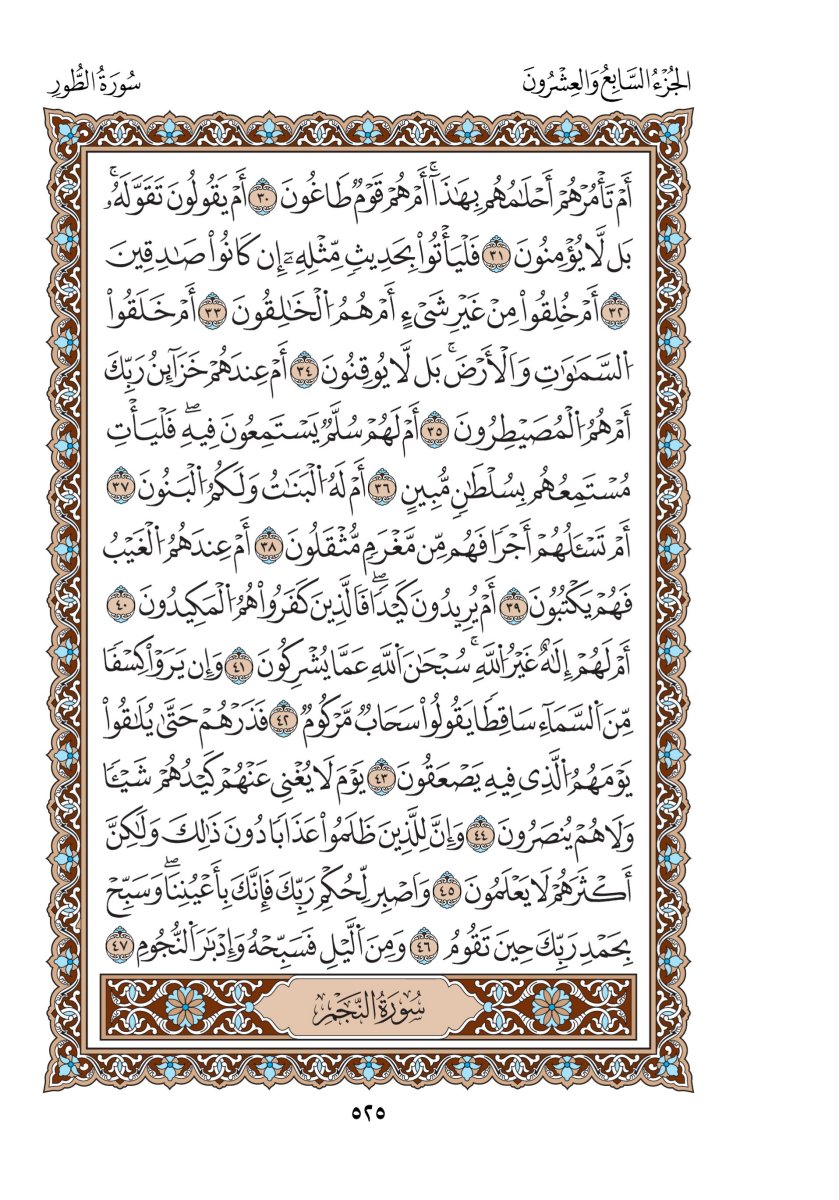 الجُزْءُ السَّابِعُ وَالعِشْرُونَ
سُورَةُ الطُّورِ
أَمْ تَأْمُرُهُمْ أَحْلَٰمُهُم بِهَٰذَآۚ أَمْ هُمْ قَوْمٞ طَاغُونَ ٣٠ أَمْ يَقُولُونَ تَقَوَّلَهُۥۚ
بَل لَّا يُؤْمِنُونَ ٣١ فَلْيَأْتُوا۟ بِحَدِيثٖ مِّثْلِهِۦٓ إِن كَانُوا۟ صَٰدِقِينَ
٣٢ أَمْ خُلِقُوا۟ مِنْ غَيْرِ شَيْءٍ أَمْ هُمُ ٱلْخَٰلِقُونَ ٣٣ أَمْ خَلَقُوا۟
ٱلسَّمَٰوَٰتِ وَٱلْأَرْضَۚ بَل لَّا يُوقِنُونَ ٣٤ أَمْ عِندَهُمْ خَزَآئِنُ رَبِّكَ
أَمْ هُمُ ٱلْمُصَۜيْطِرُونَ ٣٥ أَمْ لَهُمْ سُلَّمٞ يَسْتَمِعُونَ فِيهِۖ فَلْيَأْتِ
مُسْتَمِعُهُم بِسُلْطَٰنٖ مُّبِينٍ ٣٦ أَمْ لَهُ ٱلْبَنَٰتُ وَلَكُمُ ٱلْبَنُونَ ٣٧
أَمْ تَسْـَٔلُهُمْ أَجْرٗا فَهُم مِّن مَّغْرَمٖ مُّثْقَلُونَ ٣٨ أَمْ عِندَهُمُ ٱلْغَيْبُ
فَهُمْ يَكْتُبُونَ ٣٩ أَمْ يُرِيدُونَ كَيْدٗاۖ فَٱلَّذِينَ كَفَرُوا۟ هُمُ ٱلْمَكِيدُونَ ٤٠
أَمْ لَهُمْ إِلَٰهٌ غَيْرُ ٱللَّهِۚ سُبْحَٰنَ ٱللَّهِ عَمَّا يُشْرِكُونَ ٤١ وَإِن يَرَوْا۟ كِسْفٗا
مِّنَ ٱلسَّمَآءِ سَاقِطٗا يَقُولُوا۟ سَحَابٞ مَّرْكُومٞ ٤٢ فَذَرْهُمْ حَتَّىٰ يُلَٰقُوا۟
يَوْمَهُمُ ٱلَّذِي فِيهِ يُصْعَقُونَ ٤٣ يَوْمَ لَا يُغْنِي عَنْهُمْ كَيْدُهُمْ شَيْـٔٗا
وَلَا هُمْ يُنصَرُونَ ٤٤ وَإِنَّ لِلَّذِينَ ظَلَمُوا۟ عَذَابٗا دُونَ ذَٰلِكَ وَلَٰكِنَّ
أَكْثَرَهُمْ لَا يَعْلَمُونَ ٤٥ وَٱصْبِرْ لِحُكْمِ رَبِّكَ فَإِنَّكَ بِأَعْيُنِنَاۖ وَسَبِّحْ
بِحَمْدِ رَبِّكَ حِينَ تَقُومُ ٤٦ وَمِنَ ٱلَّيْلِ فَسَبِّحْهُ وَإِدْبَٰرَ ٱلنُّجُومِ ٤٧
سُورَةُ النَّجْمِ
٥٢٥